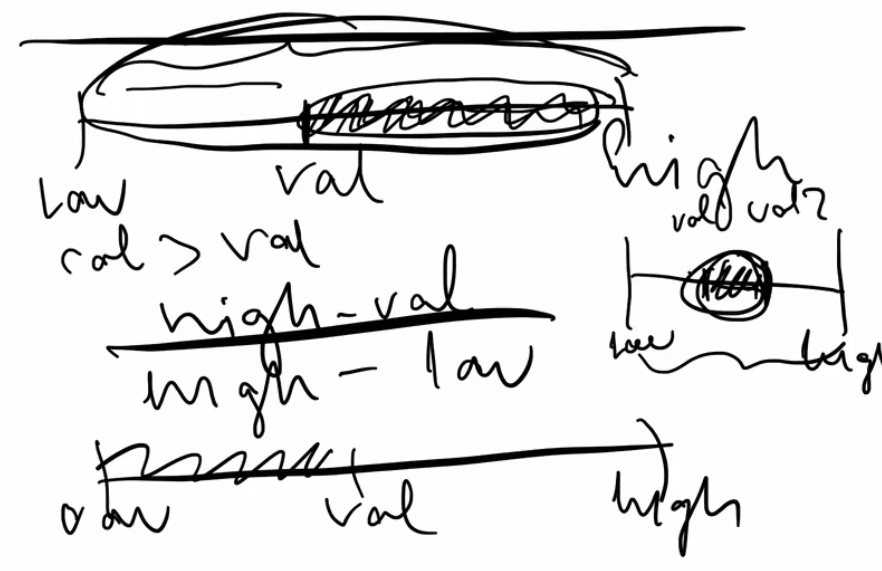 Low val high
col > val
high - val
high - low
val val2
low high
low val high